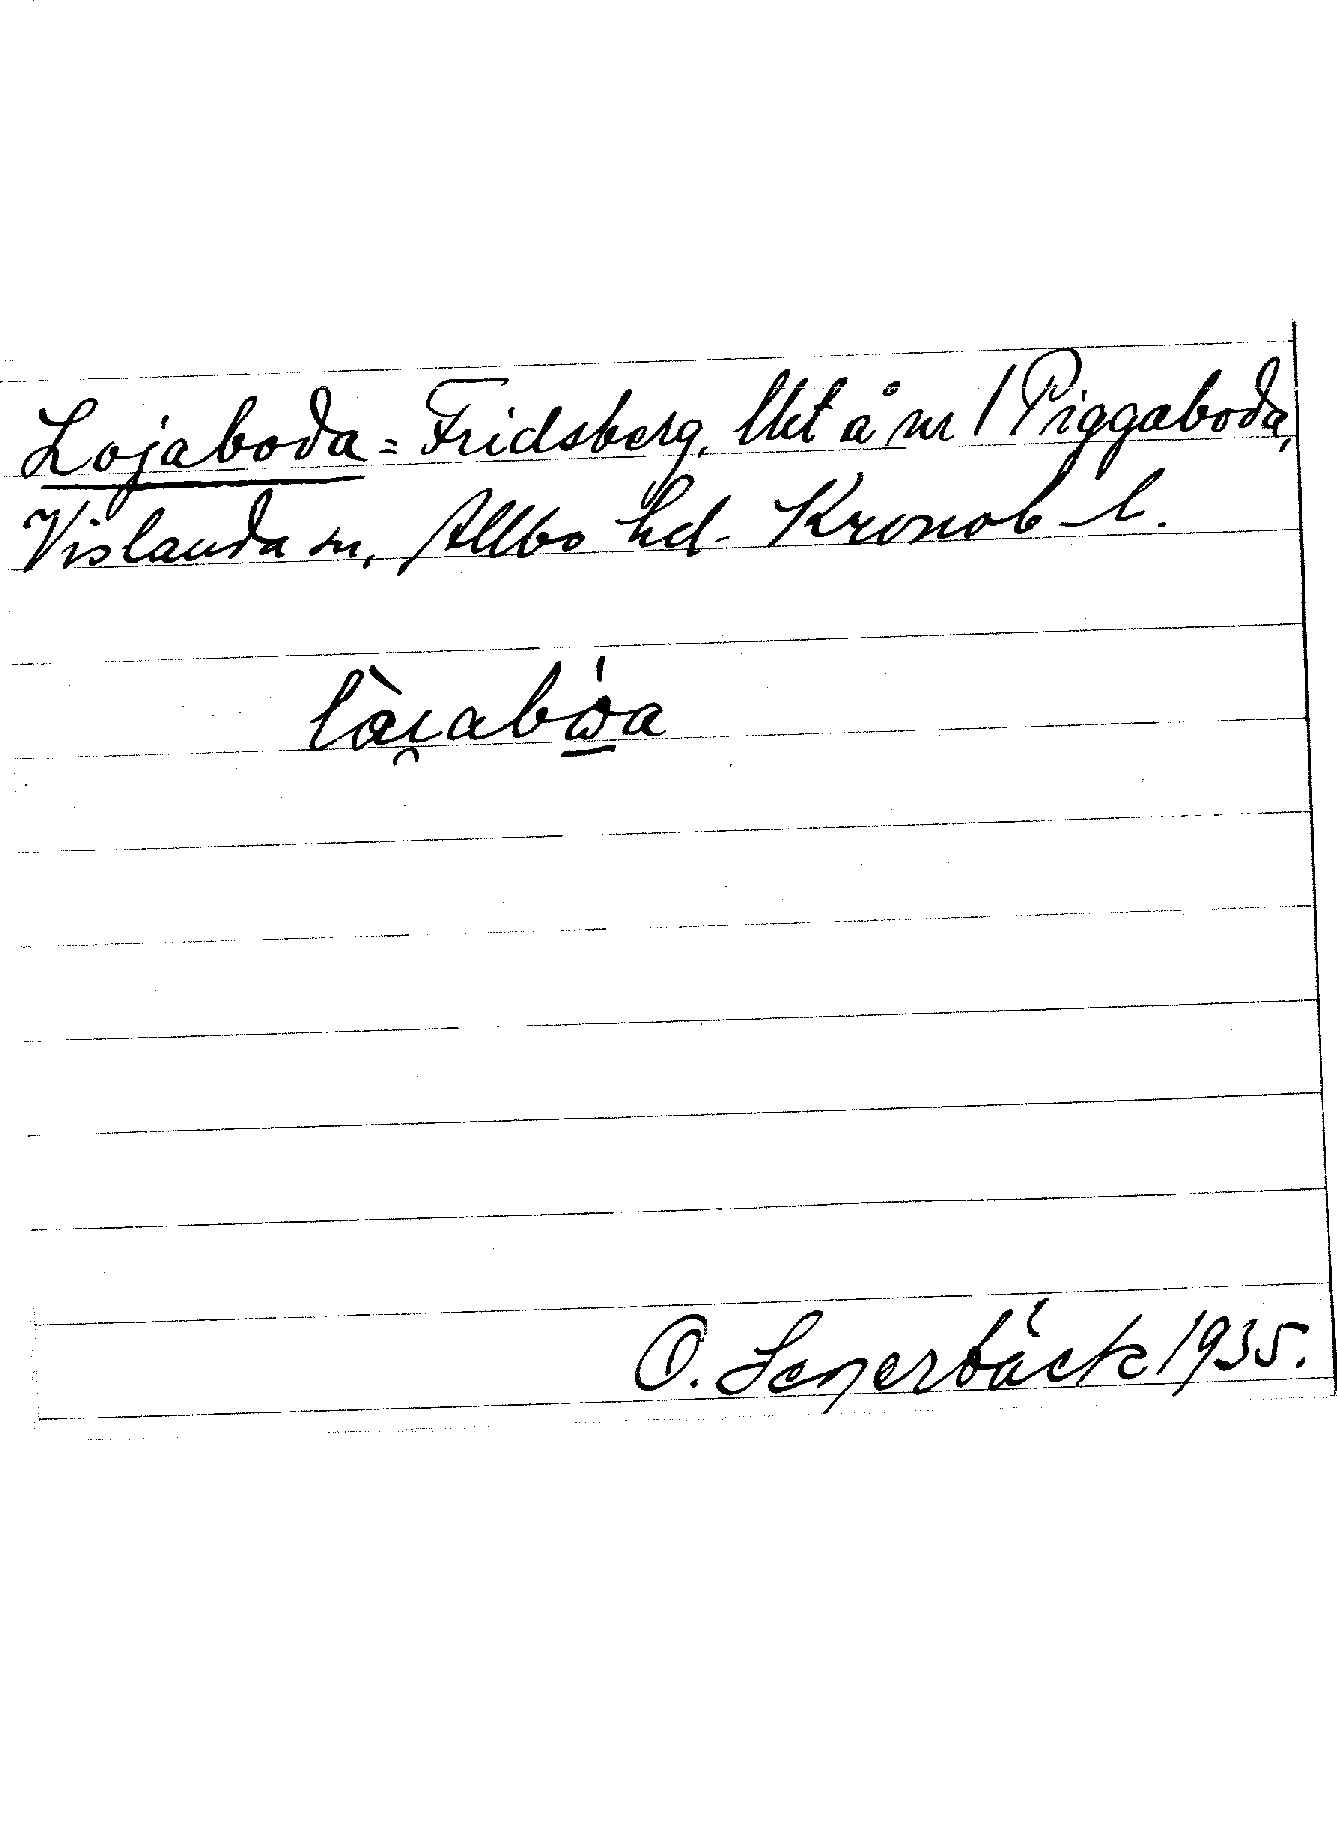 Lojaboda = Fridsberg, lht å nr 1 Piggaboda,
Vislanda sn, Allbo hd. Kronob. l.
O. Senerbäck 1935.